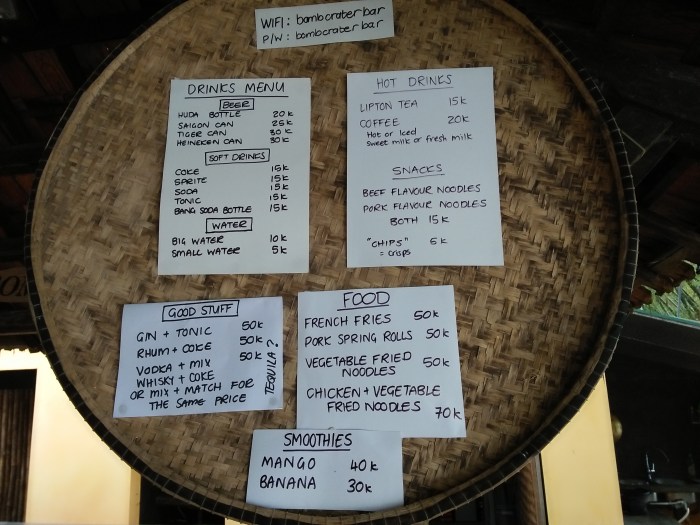 WIFI: bombcraterbar
P/W: bombcraterbar
DRINKS MENU
BEER
HUDA BOTTLE 20k
SAIGON CAN 25k
TIGER CAN 30k
HEINEKEN CAN 30k
SOFT DRINKS
COKE 15k
SPRITE 15k
SODA 15k
TONIC 15k
BANG SODA BOTTLE 15k
WATER
BIG WATER 10k
SMALL WATER 5k
HOT DRINKS
LIPTON TEA 15k
COFFEE 20k
Hot or Iced
sweet milk or fresh milk
SNACKS
BEEF FLAVOUR NOODLES
PORK FLAVOUR NOODLES
BOTH 15k
"CHIPS" 6k
= crisps
GOOD STUFF
GIN + TONIC 50k
RHUM + COKE 50k
VODKA + MIX 50k
WHISKY + COKE
OR MIX + MATCH FOR
THE SAME PRICE
TEQUILA?
FOOD
FRENCH FRIES 50k
PORK SPRING ROLLS 50k
VEGETABLE FRIED
NOODLES 50k
CHICKEN + VEGETABLE
FRIED NOODLES 70k
SMOOTHIES
MANGO 40k
BANANA 30k